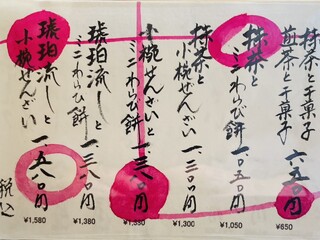 抹茶と干菓子
煎茶と干菓子
六五〇円
¥650
抹茶と
ミニわらび餅
一、〇五〇円
¥1,050
抹茶と
小椀ぜんざい
一、三〇〇円
¥1,300
小椀ぜんざいと
ミニわらび餅
琥珀流しと
ミニわらび餅
一、三八〇円
¥1,380
琥珀流しと
小椀ぜんざい
一、五八〇円
¥1,580
税込